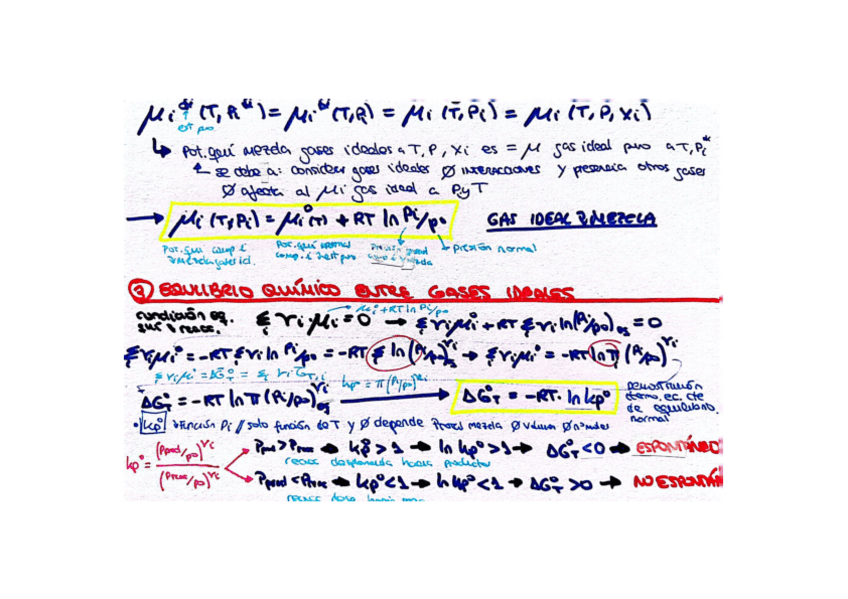 μi^GI (T, Pi^GI) = μi^GI (T, Pi) = μi (T, Pi) = μi (T, P, xi)
est puro
↳ Pot. quí mezcla gases ideales a T, P, xi es = μ gas ideal puro a T, Pi*
↳ se debe a: considerar gases ideales Ø interacciones y presencia otros gases
Ø afecta al μi gas ideal a P y T
→ μi (T, Pi) = μi°(T) + RT ln Pi/p° GAS IDEAL 𝟏 MEZCLA
Pot. quí comp i Pot. quí normal Presión parcial → Presión normal
comp. i est puro
③ EQUILIBRIO QUÍMICO ENTRE GASES IDEALES
condición eq. Σ νi·μi = 0 → Σ νiμi° + RT Σ νi ln(Pi/p°)eq = 0
μi° + RT ln Pi/p°
Σ νiμi° = -RT Σ νi ln Pi/p° = -RT Σ ln (Pi/p°)^νi → Σ νiμi° = -RT ln π (Pi/p°)^νi
Σ νi μi° = ΔG°T = Σ νi G°T,i
ΔG°T = -RT ln π (Pi/p°)^νi eq → kp° = π (Pi/p°)^νi ΔG°T = -RT· ln kp°
demostración
termo. ec. cte
de equilibrio
normal
• kp° → función Pi // solo función de T y Ø depende Ptotal mezcla Ø volumen Ø nº moles
kp° = (Pprod/p°)^νi / (Preac/p°)^νi
Pprod > Preac → kp° > 1 → ln kp° > 1 → ΔG°T < 0 → ESPONTÁNEO
reacc desplazada hacia productos
Pprod < Preac → kp° < 1 → ln kp° < 1 → ΔG°T > 0 → NO ESPONTÁN